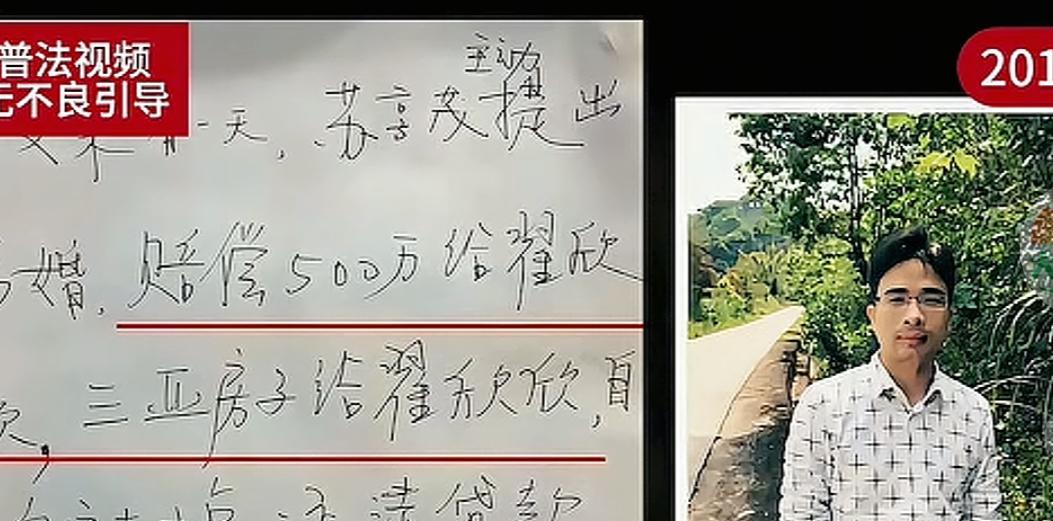 普法视频
无不良引导
201
一天,苏享茂主动提出
离婚.赔偿500万给翟欣
欣,三亚房子给翟欣欣,自
清贷款